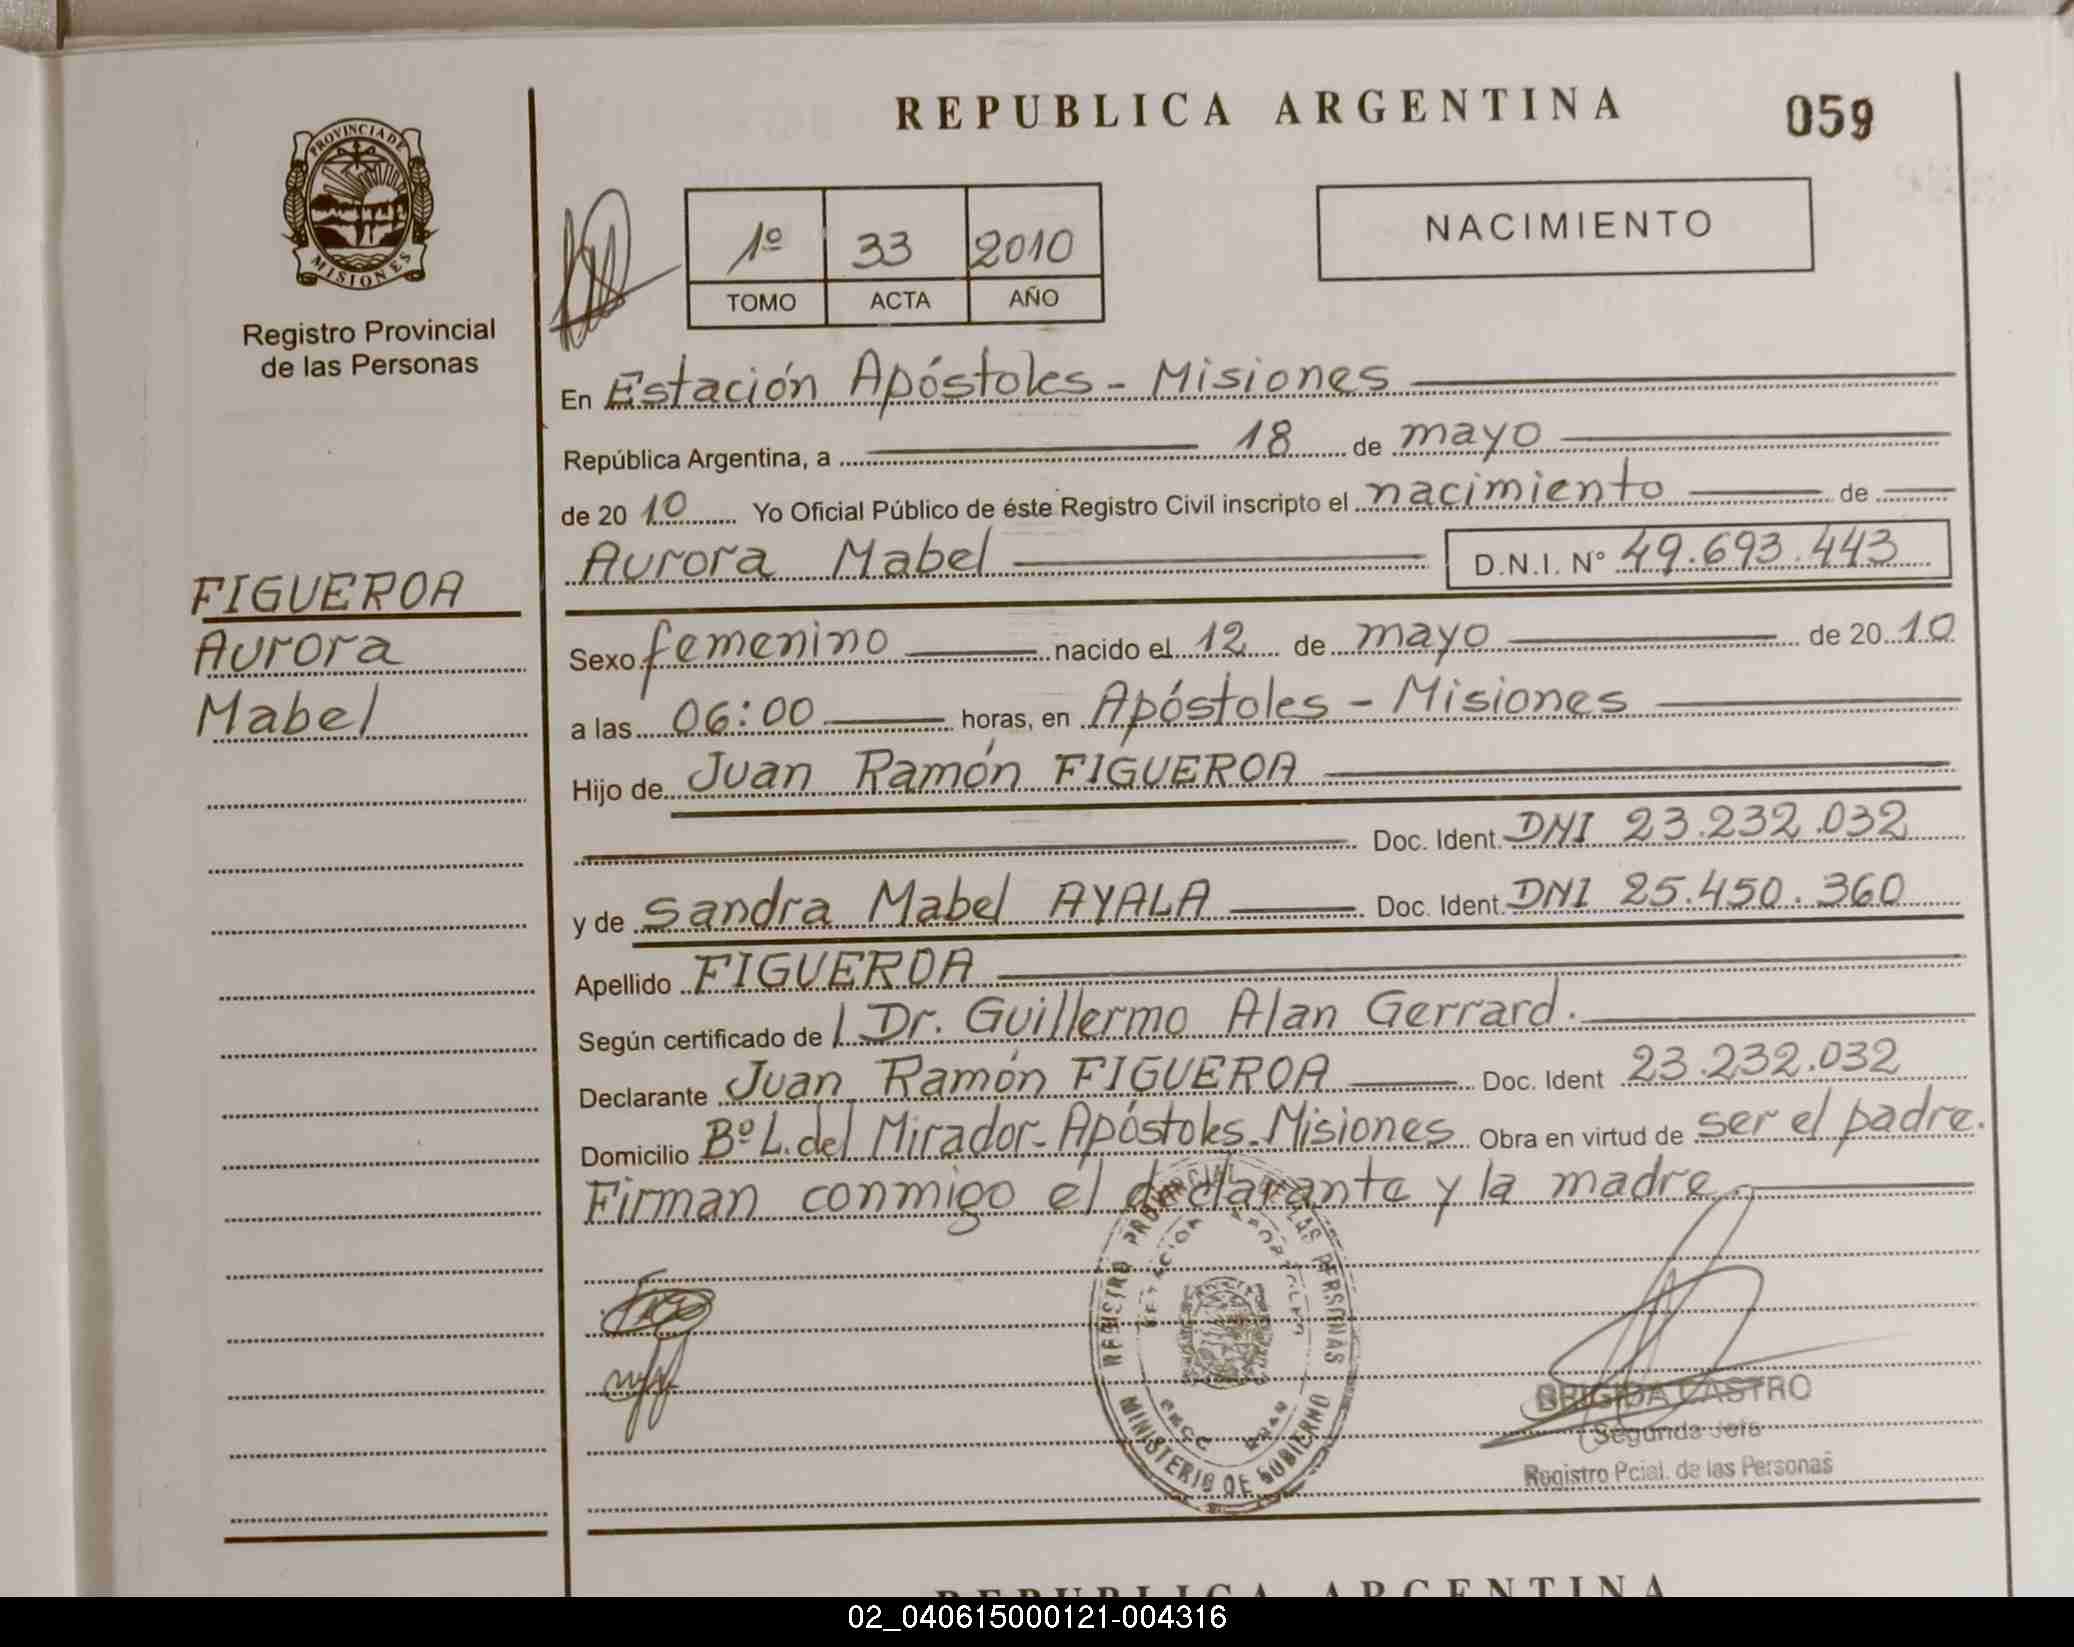 REPUBLICA ARGENTINA
059
PROVINCIA DE
MISIONES
Registro Provincial
de las Personas
1º 33 2010
TOMO ACTA AÑO
NACIMIENTO
En Estación Apóstoles - Misiones
República Argentina, a 18 de mayo
de 2010 Yo Oficial Público de éste Registro Civil inscripto el nacimiento de
Aurora Mabel D.N.I. Nº 49.693.443
FIGUEROA
Aurora
Mabel
Sexo femenino nacido el 12 de mayo de 2010
a las 06:00 horas, en Apóstoles - Misiones
Hijo de Juan Ramón FIGUEROA
Doc. Ident. DNI 23.232.032
y de Sandra Mabel AYALA Doc. Ident. DNI 25.450.360
Apellido FIGUEROA
Según certificado de l Dr. Guillermo Alan Gerrard.
Declarante Juan Ramón FIGUEROA Doc. Ident 23.232.032
Domicilio Bº L. del Mirador - Apóstoles - Misiones Obra en virtud de ser el padre.
Firman conmigo el declarante y la madre.
REGISTRO PROVINCIAL DE LAS PERSONAS
MINISTERIO DE GOBIERNO
BRIGIDA CASTRO
Segunda Jefe
Registro Pcial. de las Personas
REPUBLICA ARGENTINA
02_040615000121-004316